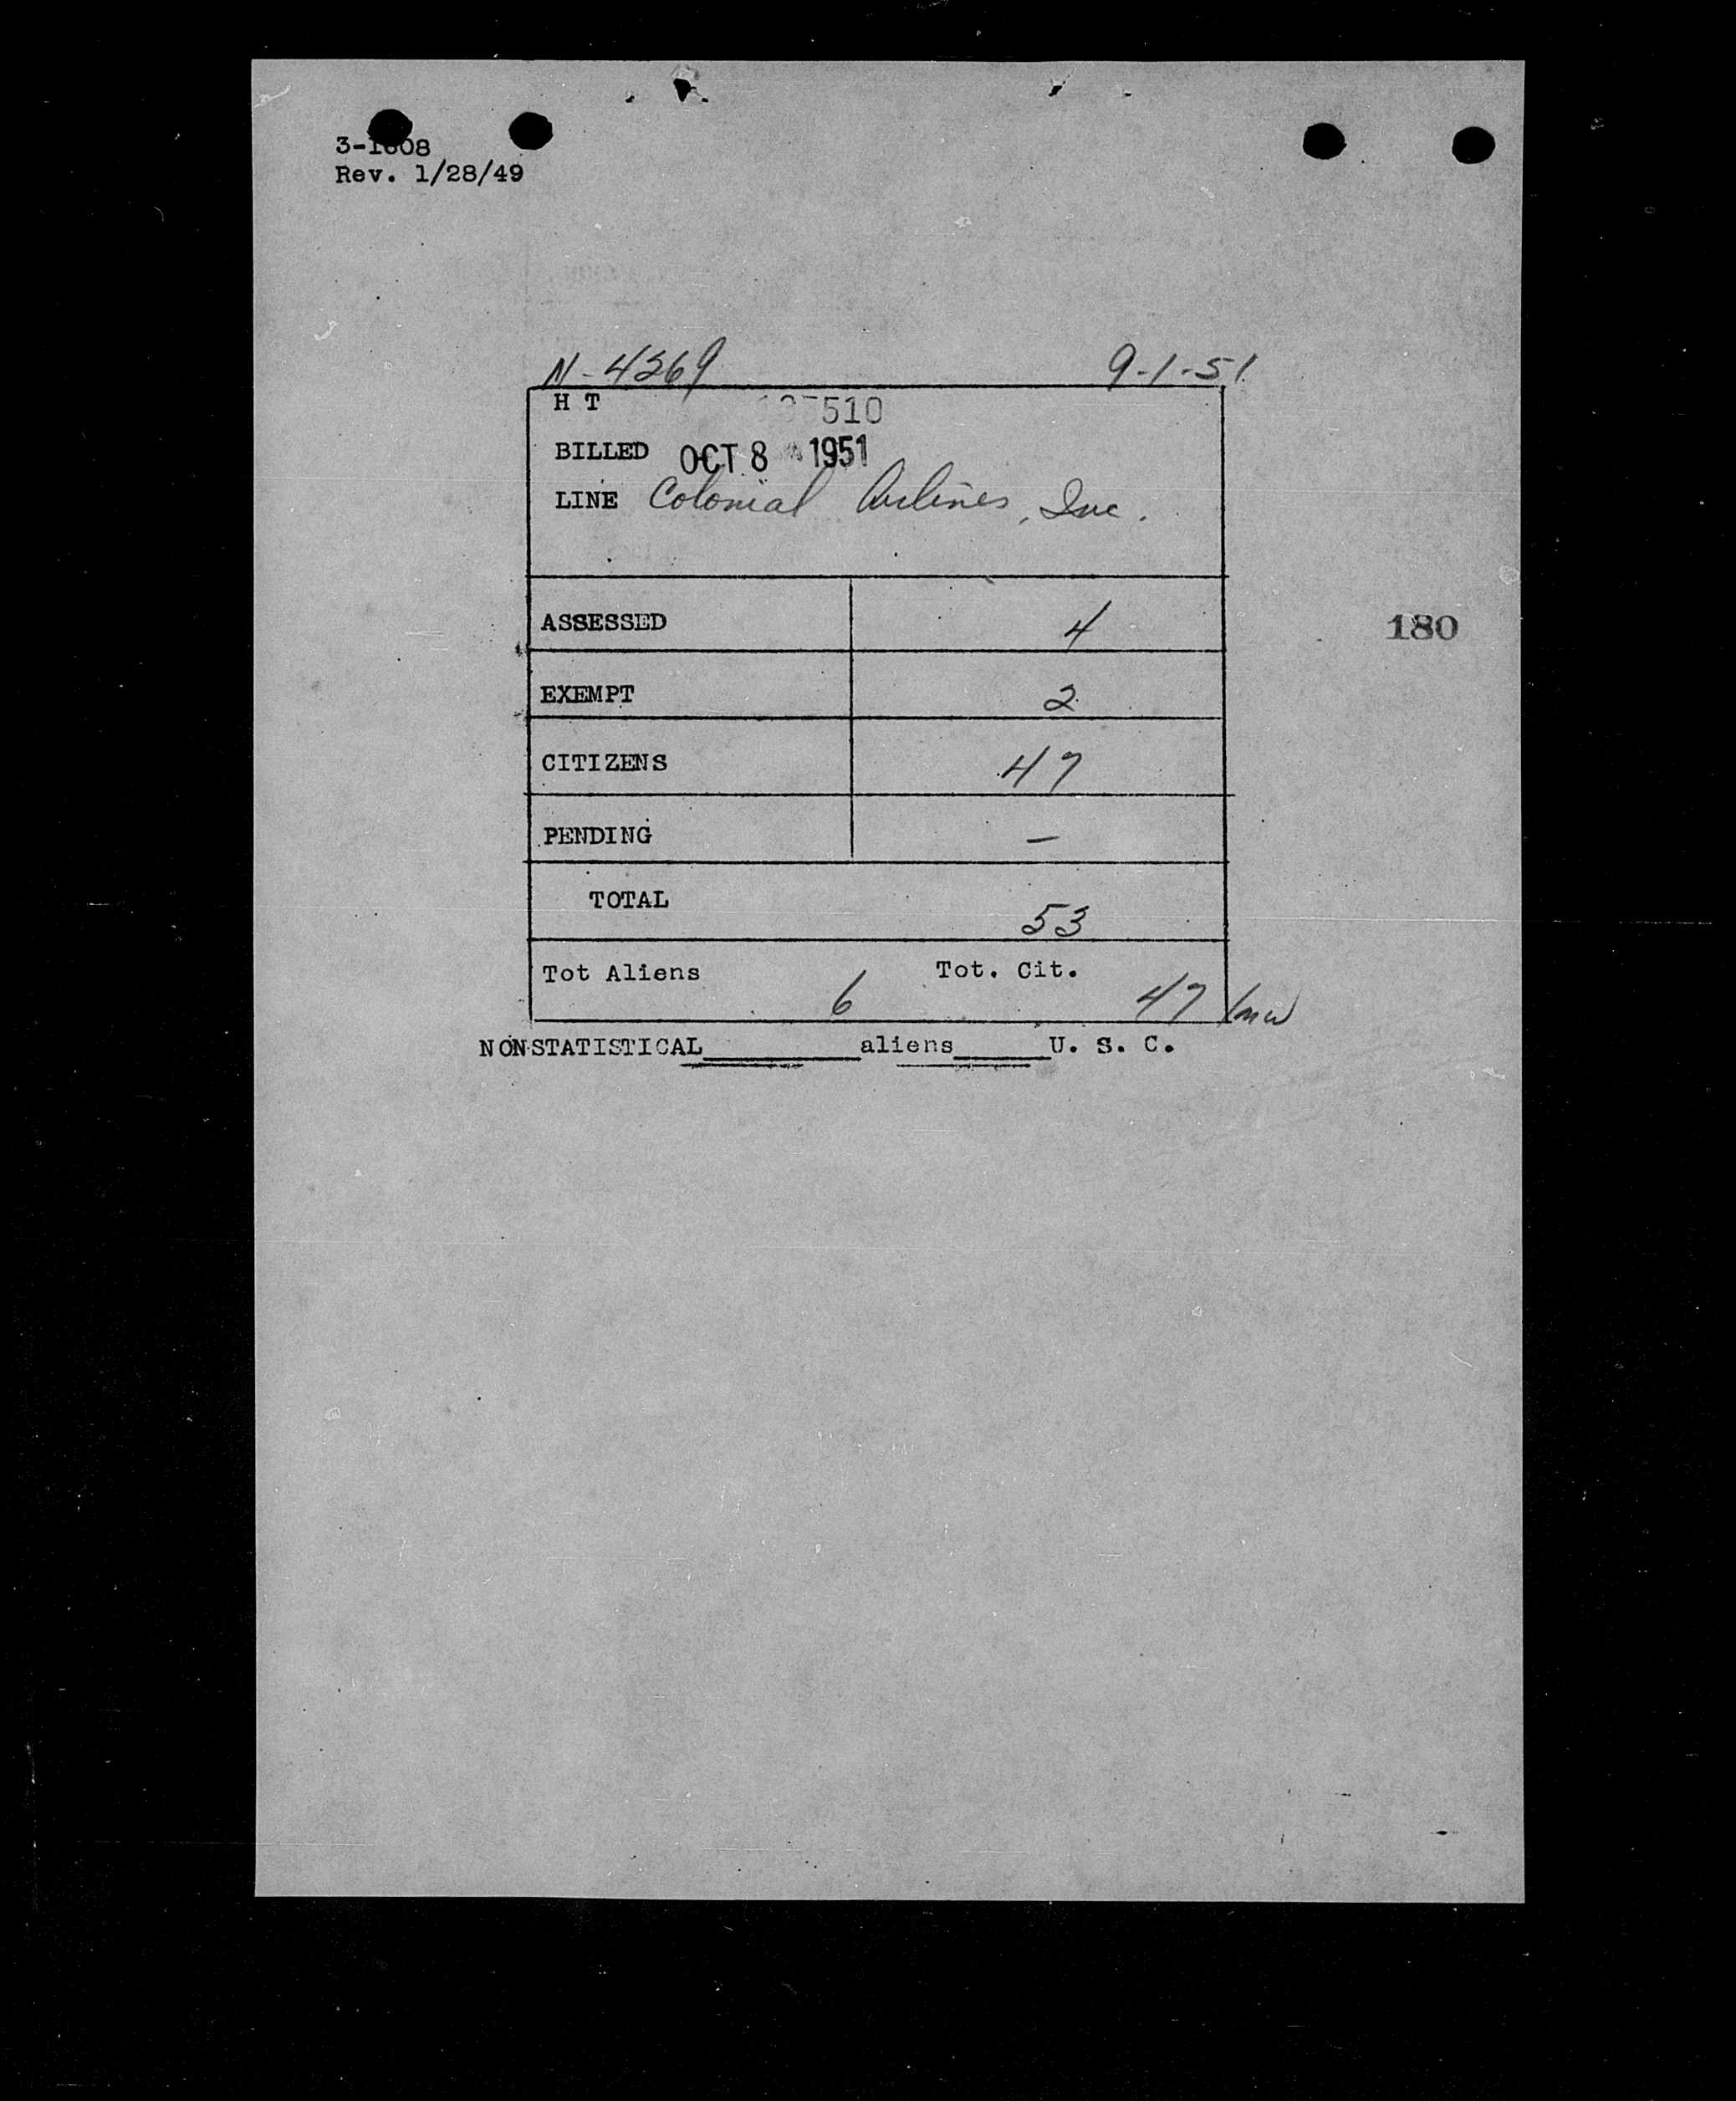 3-1608
Rev. 1/28/49
N-4269 9-1-51
H T 510
BILLED OCT 8 1951
LINE Colonial Airlines, Inc.
ASSESSED 4
180
EXEMPT 2
CITIZENS 47
PENDING —
TOTAL 53
Tot Aliens 6 Tot. Cit. 47
NONSTATISTICAL________aliens_____U. S. C.